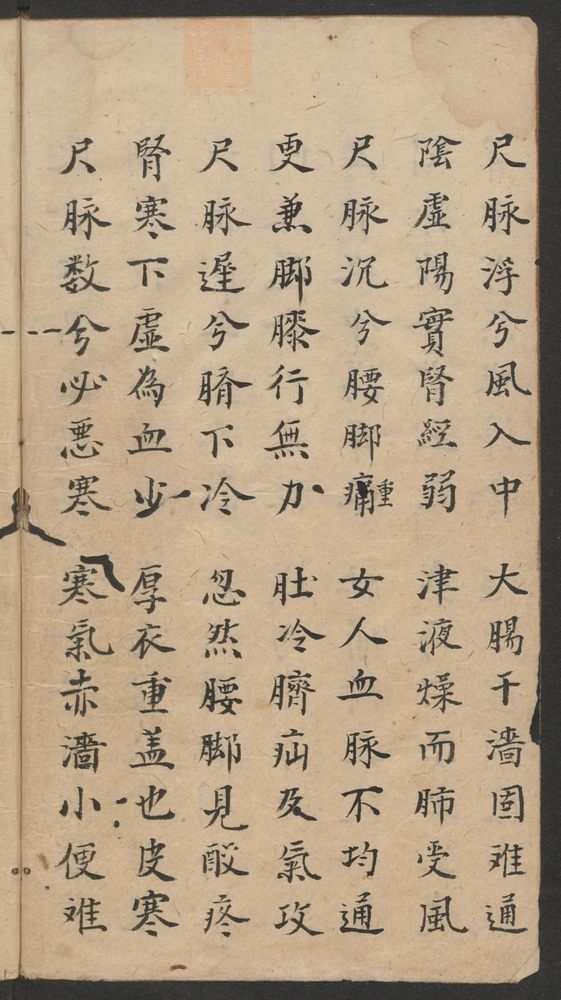 尺脉浮兮風入中 大腸干濇固难通
陰虛陽實腎經弱 津液燥而肺受風
尺脉沉兮腰脚痛重 女人血脉不均通
更兼脚膝行無力 肚冷臍疝及氣攻
尺脉遲兮脐下冷 忽然腰脚見酸疼
腎寒下虛為血少 厚衣重盖也皮寒
尺脉数兮必悪寒 寒氣赤濇小便难